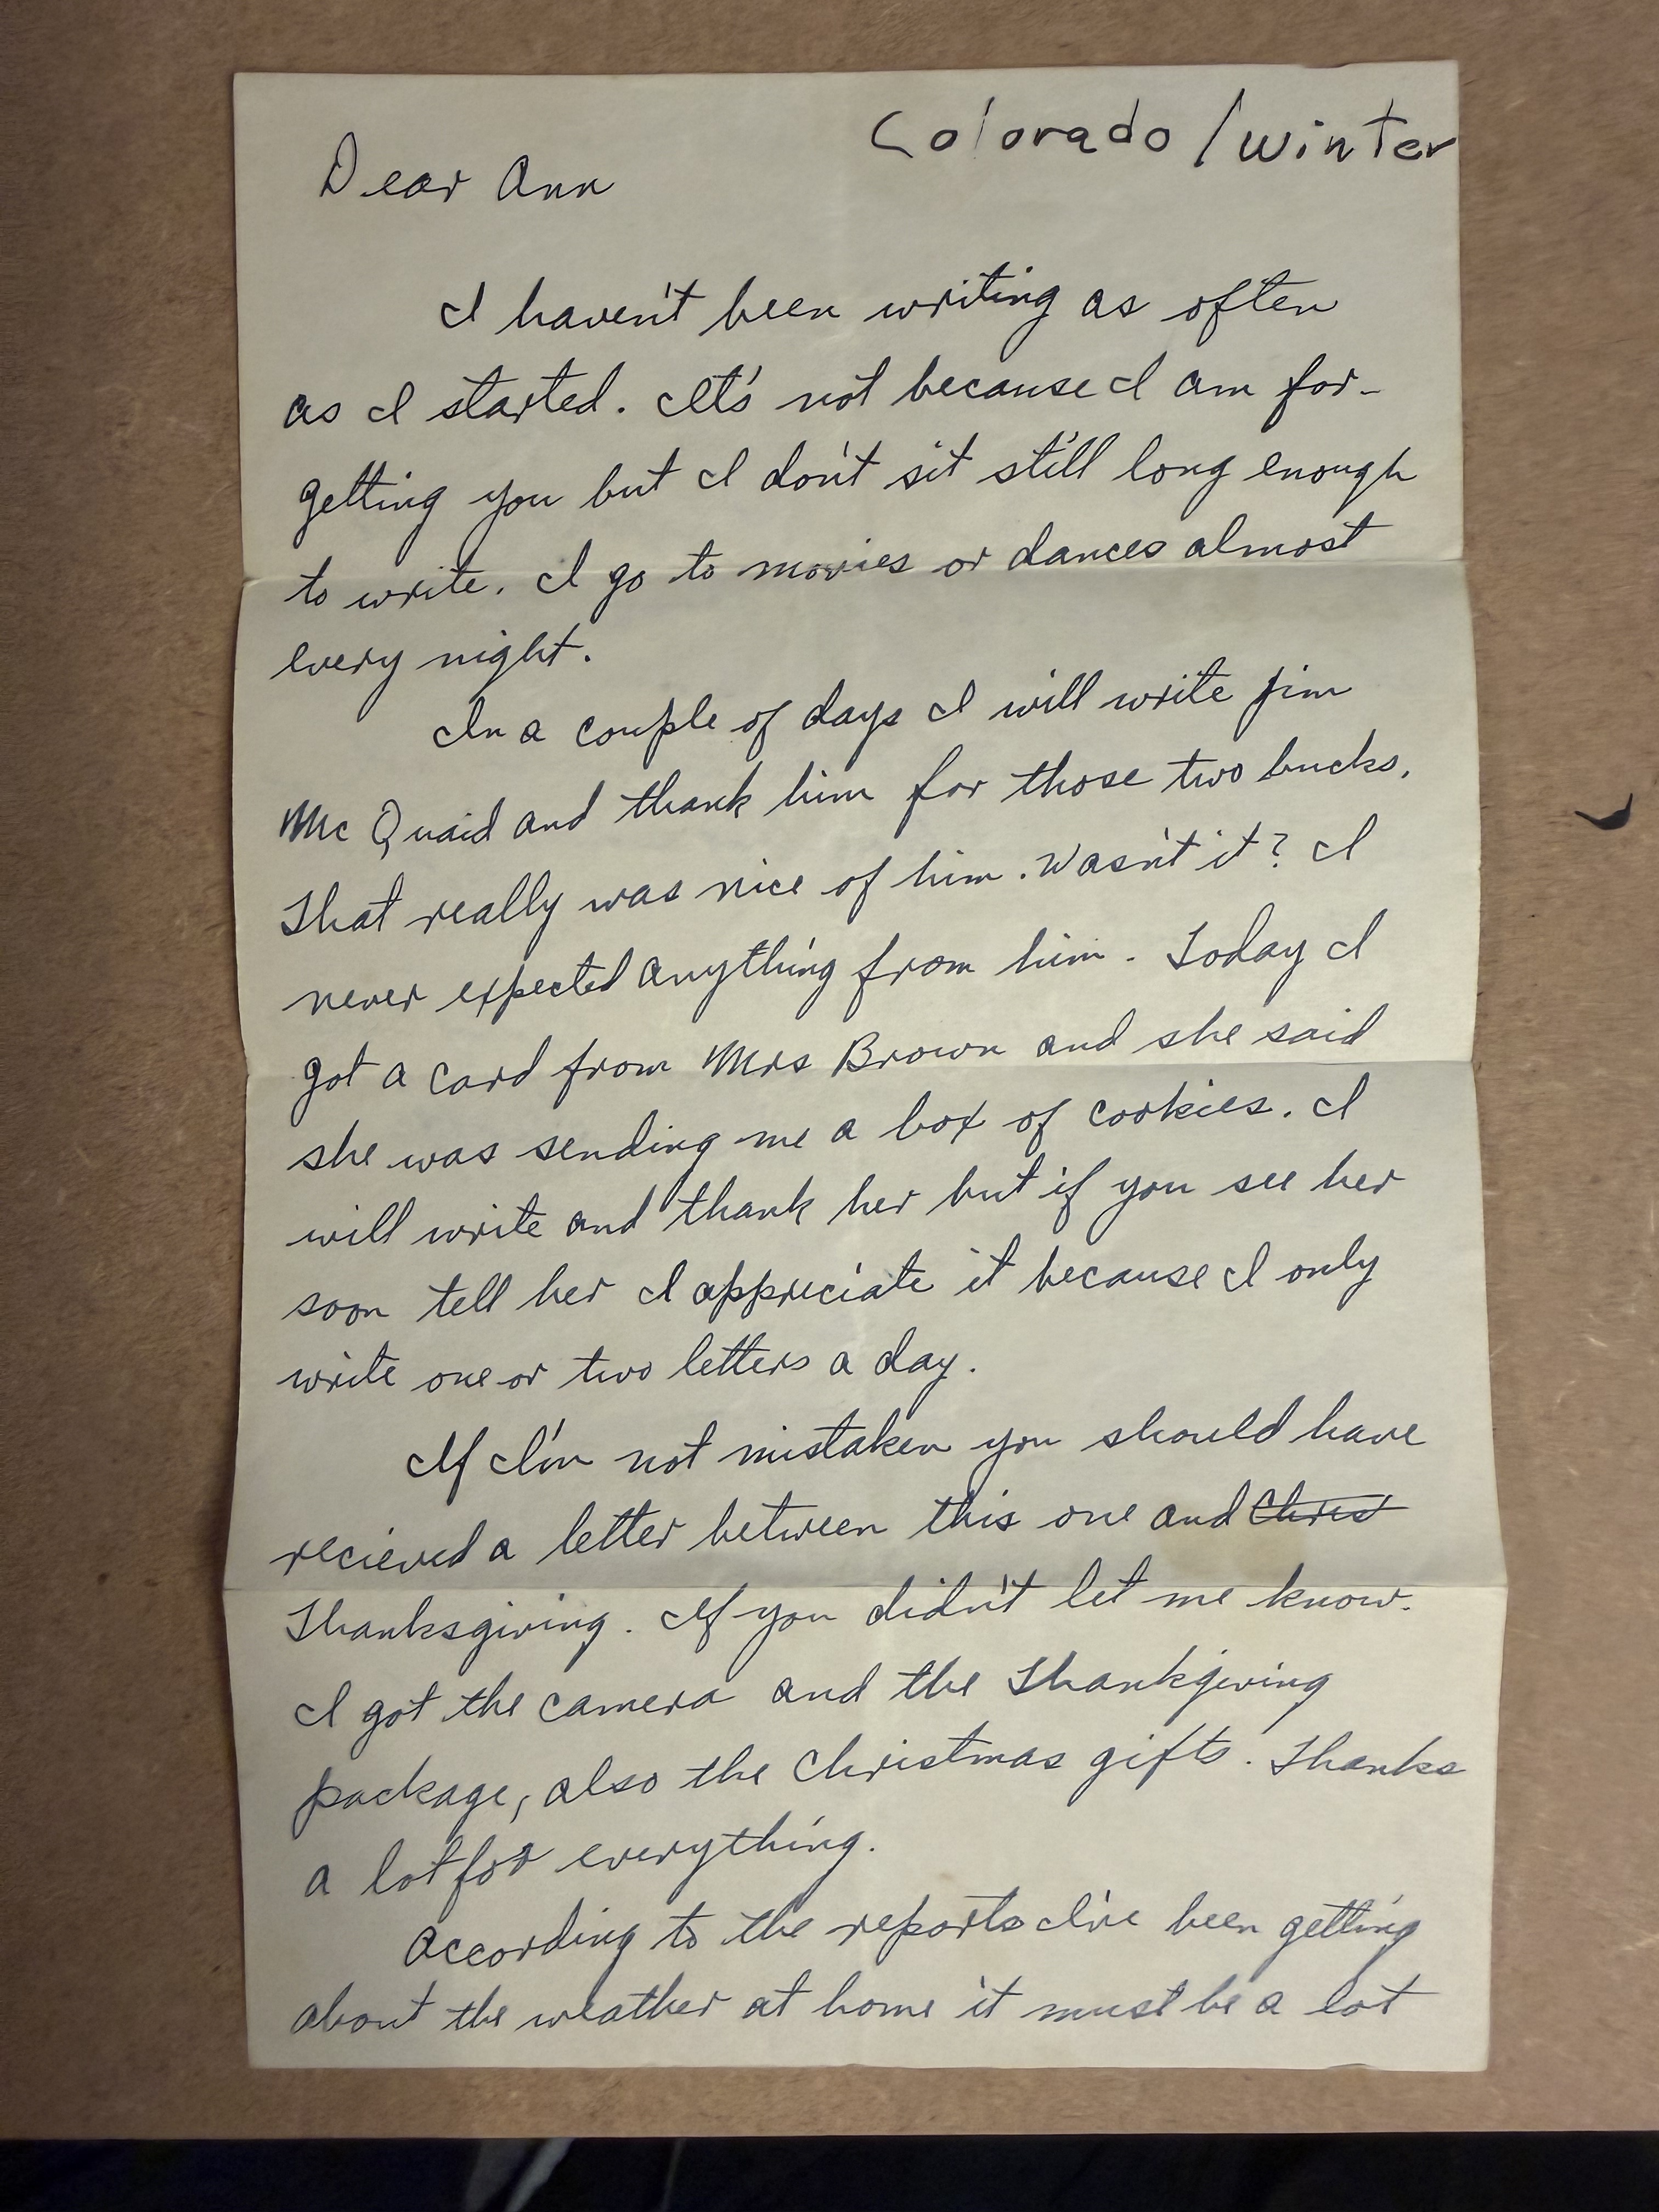 Colorado / Winter
Dear Ann
I haven't been writing as often
as I started. It's not because I am for-
getting you but I don't sit still long enough
to write. I go to movies or dances almost
every night.
In a couple of days I will write Jim
Mc Quaid and thank him for those two bucks.
That really was nice of him. Wasn't it? I
never expected anything from him. Today I
got a card from Mrs Brown and she said
she was sending me a box of cookies. I
will write and thank her but if you see her
soon tell her I appreciate it because I only
write one or two letters a day.
If I'm not mistaken you should have
recieved a letter between this one and Christ
Thanksgiving. If you didn't let me know.
I got the camera and the Thankgiving
package, also the Christmas gifts. Thanks
a lot for everything.
According to the reports I've been getting
about the weather at home it must be a lot